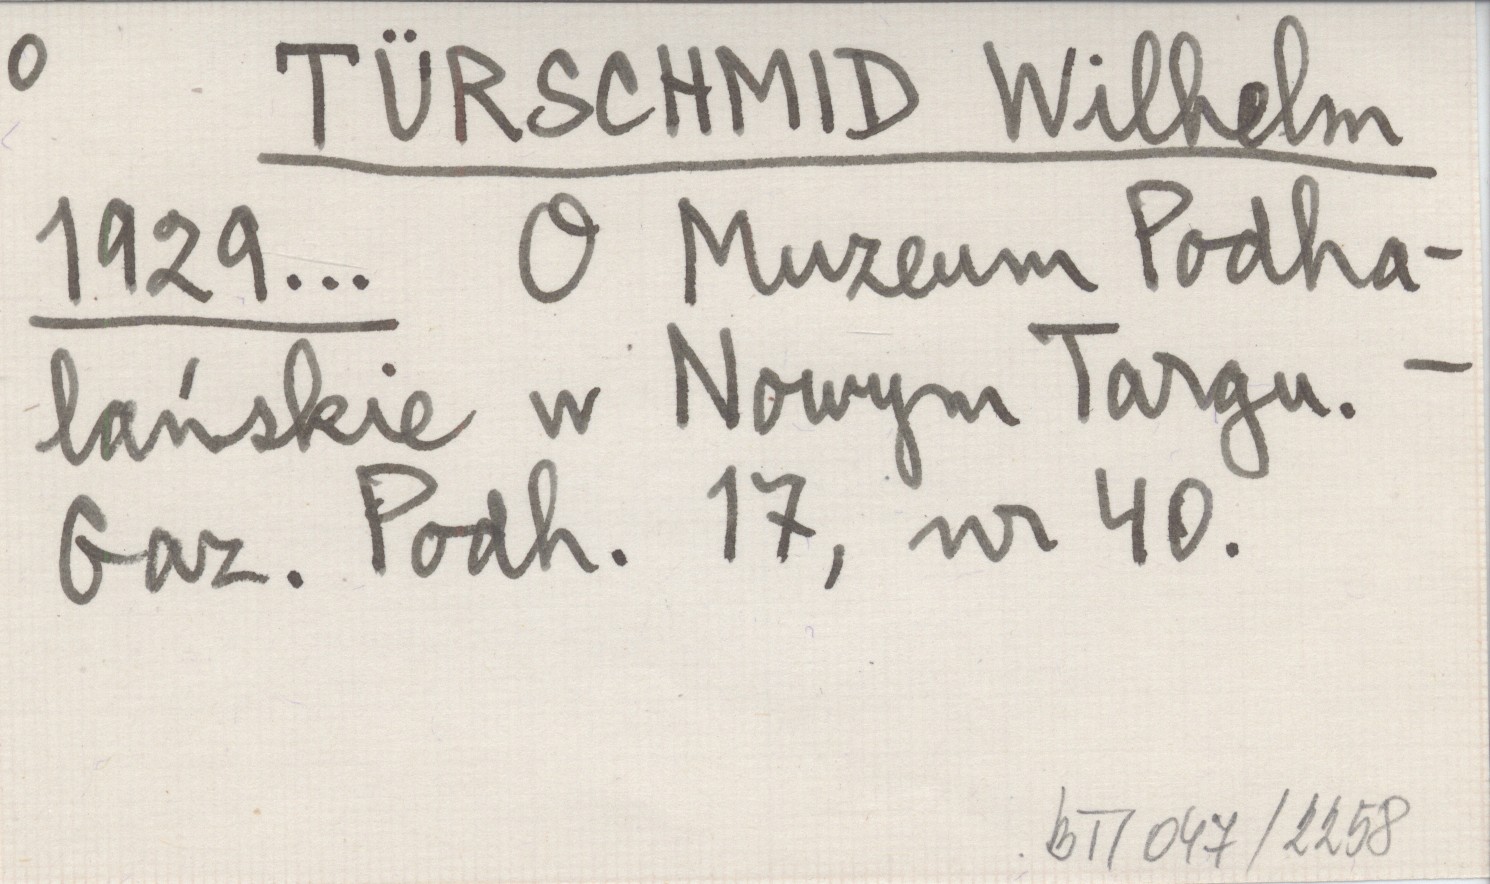 O TÜRSCHMID Wilhelm
1929... O Muzeum Podha-
lańskie w Nowym Targu. -
Gaz. Podh. 17, nr 40.
bTI 047/2258